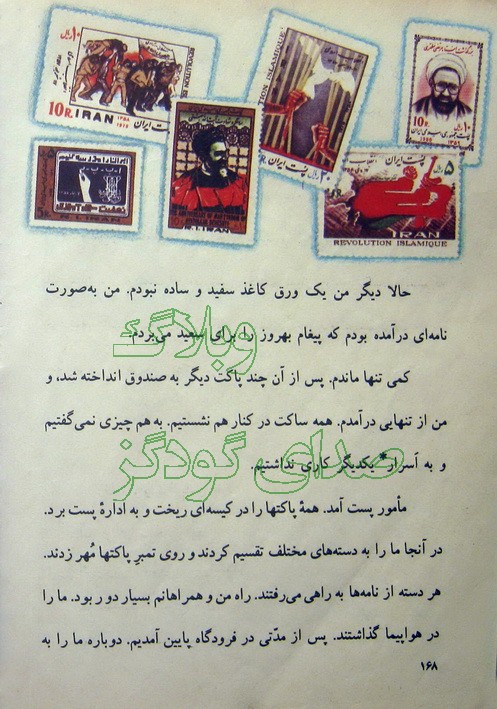 ۱۰ریال
10R.
IRAN
۱۳۵۸
پست ایران
REVOLUTION ISLAMIQUE
پست ایران
۱۰ریال
10R.
پست ایران
۵ریال
IRAN
REVOLUTION ISLAMIQUE
حالا دیگر من یک ورق کاغذ سفید و ساده نبودم. من به‌صورت
نامه‌ای درآمده بودم که پیغام بهروز را برای سعید می‌بردم.
وبلاگ
کمی تنها ماندم. پس از آن چند پاکت دیگر به صندوق انداخته شد، و
من از تنهایی درآمدم. همه ساکت در کنار هم نشستیم. به هم چیزی نمی‌گفتیم
و به اَسرار* یکدیگر کاری نداشتیم.
صدای گودگز
مأمور پست آمد. همهٔ پاکتها را در کیسه‌ای ریخت و به ادارهٔ پست برد.
در آنجا ما را به دسته‌های مختلف تقسیم کردند و روی تمبرِ پاکتها مُهر زدند.
هر دسته از نامه‌ها به راهی می‌رفتند. راه من و همراهانم بسیار دور بود. ما را
در هواپیما گذاشتند. پس از مدّتی در فرودگاه پایین آمدیم. دوباره ما را به
۱۶۸